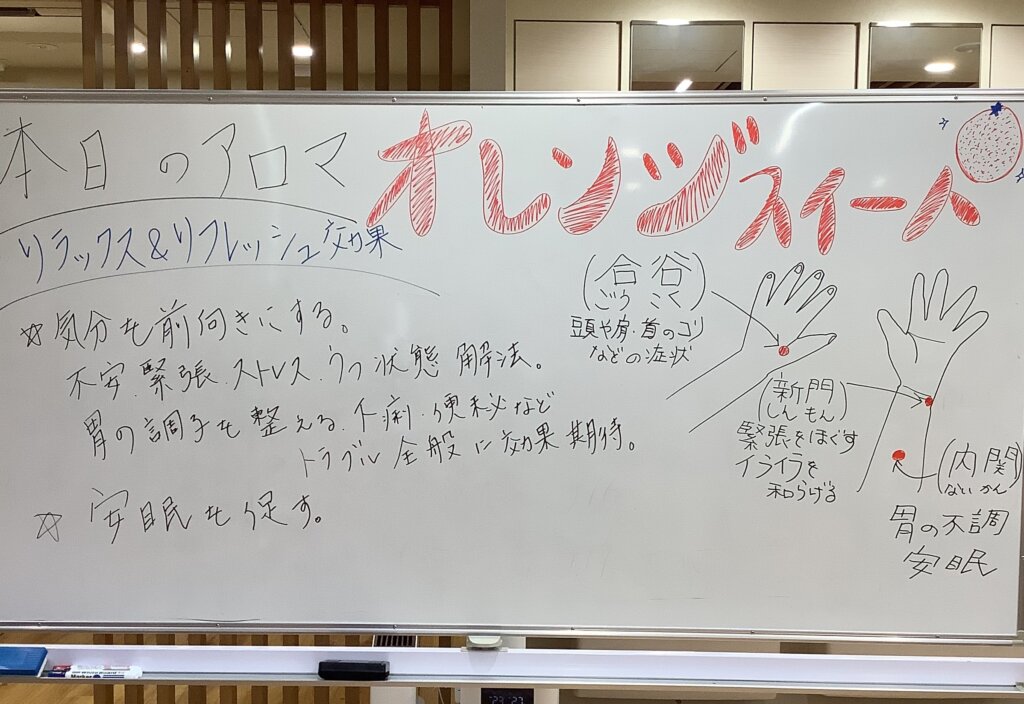 本日のアロマ オレンジスイート
リラックス&リフレッシュ効果
☆気分を前向きにする。
不安.緊張.ストレス.うつ状態 解法。
胃の調子を整える.下痢.便秘など
トラブル全般に効果期待。
☆安眠を促す。
(合谷)
ごう こく
頭や肩・首のコリ
などの症状
(新門)
しん もん
緊張をほぐす
イライラを
和らげる
(内関)
ない かん
胃の不調
安眠